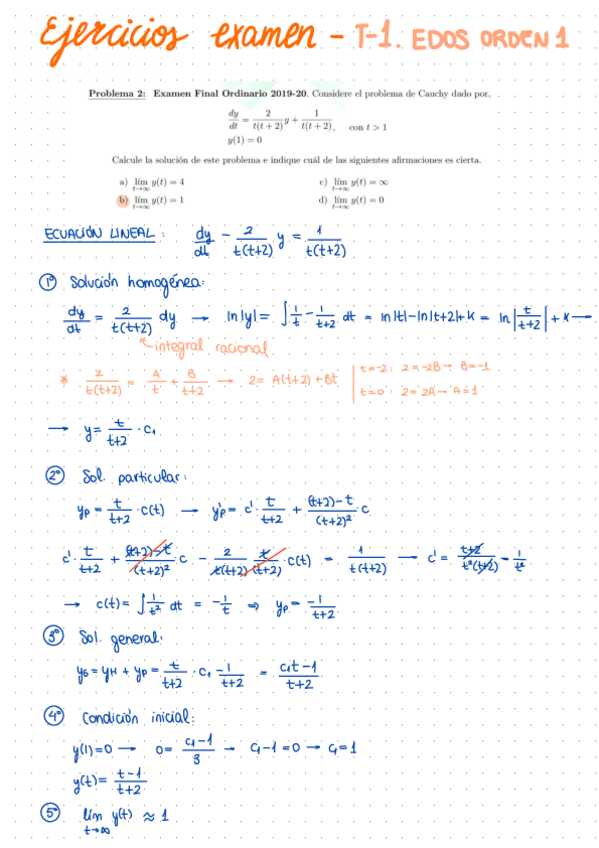 Ejercicios examen - T-1. EDOS ORDEN 1
Problema 2: Examen Final Ordinario 2019-20. Considere el problema de Cauchy dado por,
dy/dt = 2/(t(t+2)) y + 1/(t(t+2)), con t > 1
y(1) = 0
Calcule la solución de este problema e indique cuál de las siguientes afirmaciones es cierta.
a) lím t→∞ y(t) = 4 c) lím t→∞ y(t) = ∞
b) lím t→∞ y(t) = 1 d) lím t→∞ y(t) = 0
ECUACIÓN LINEAL: dy/dt - 2/(t(t+2)) y = 1/(t(t+2))
1º Solución homogénea:
dy/dt = 2/(t(t+2)) dy → ln|y| = ∫ 1/t - 1/(t+2) dt = ln|t| - ln|t+2| + K = ln|t/(t+2)| + K →
integral racional
* 2/(t(t+2)) = A/t + B/(t+2) → 2 = A(t+2) + Bt | t=-2: 2=-2B → B=-1
t=0: 2=2A → A=1
→ y = t/(t+2) · c₁
2º Sol. particular:
yp = t/(t+2) · c(t) → y'p = c' · t/(t+2) + ((t+2)-t)/(t+2)² c
c' · t/(t+2) + ((t+2)-t)/(t+2)² · c - 2/(t(t+2)) t/(t+2) · c(t) = 1/(t(t+2)) → c' = (t+2)/(t²(t+2)) - 1/t²
→ c(t) = ∫ 1/t² dt = -1/t ⇒ yp = -1/(t+2)
3º Sol. general:
yG = yH + yp = t/(t+2) · c₁ - 1/(t+2) = (c₁t-1)/(t+2)
4º Condición inicial:
y(1)=0 → 0 = (c₁-1)/3 → c₁-1=0 → c₁=1
y(t) = (t-1)/(t+2)
5º lím t→∞ y(t) ≈ 1